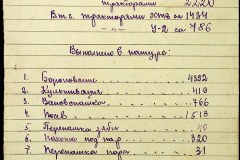 тракторами 2220
В т.ч. тракторами ХТЗ га 1434
— „ — У-2 га 786
Выполнено в натуре:
1. Боронование 4382
2. Культивация 419
3. 766
4. Посев 1513
5. Перепашка зяби 40
6. Пахота под пар 320
7. Перепашка пара 31